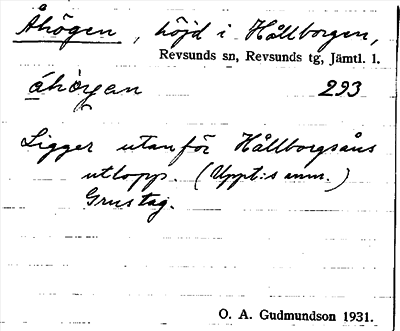 Åhögen, höjd i Hållborgen,
Revsunds sn, Revsunds tg, Jämtl. l.
áhöɡan 293
Ligger utanför Hållborgsåns
utlopp. (Uppt:s anm.)
Grustag.
O. A. Gudmundson 1931.